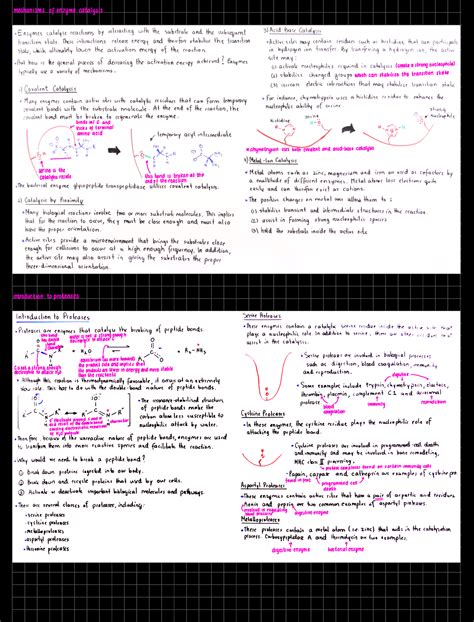 mechanisms of enzyme catalysis
• Enzymes catalyze reactions by interacting with the substrate and the subsequent
transition state. This interactions release energy and therefore stabilize the transition
state, which ultimately lower the activation energy of the reaction.
• But how is the general process of decreasing the activation energy achieved? Enzymes
typically use a variety of mechanisms.
1) Covalent Catalysis
• Many enzymes contain active sites with catalytic residues that can form temporary
covalent bonds with the substrate molecule. At the end of the reaction, the
covalent bond must be broken to regenerate the enzyme.
temporary acyl intermediate
serine is the
catalytic residue
this bond is broken at the
end of the reaction
• The bacterial enzyme glycopeptide transpeptidase utilizes covalent catalysis.
2) Catalysis by Proximity
• Many biological reactions involve two or more substrate molecules. This implies
that for the reaction to occur, they must be close enough and must also
have the proper orientation.
• Active sites provide a microenvironment that brings the substrates close
enough for collisions to occur at a high enough frequency. In addition,
the active site may also assist in giving the substrates the proper
three-dimensional orientation.
3) Acid-Base Catalysis
• Active sites may contain residues such as histidine, that can participate
in hydrogen ion transfer. By transferring a hydrogen ion, the active
site may:
(1) activate nucleophiles required in catalysis (create a strong nucleophile)
(2) stabilize charged groups which can stabilize the transition state
(3) increase electric interactions that may stabilize transition state
• For instance, chymotrypsin uses a histidine residue to enhance the
nucleophilic ability of serine
histidine
serine
* chymotrypsin can use covalent and acid-base catalysis
4) Metal-Ion Catalysis
• Metal atoms such as zinc, magnesium and iron are used as cofactors by
a multitude of different enzymes. Metal atoms lose electrons quite
easily and can therefore exist as cations.
• The positive charges on metal ions allow them to:
(1) stabilize transient and intermediate structures in the reaction.
(2) assist in forming strong nucleophilic species
(3) hold the substrate inside the active site
introduction to proteases
Introduction to Proteases
• Proteases are enzymes that catalyze the breaking of peptide bonds.
• Although this reaction is thermodynamically favorable, it occurs at an extremely
slow rate. This has to do with the double-bond nature of peptide bonds.
• The resonance-stabilized structure
of peptide bonds make the
carbon atom less susceptible to
nucleophilic attack by water.
• Therefore, because of the unreactive nature of peptide bonds, enzymes are used
to transform them into more reactive species and facilitate the reaction.
• Why would we need to break a peptide bond?
① Break down proteins ingested into our body.
② Break down and recycle proteins that used by our cells.
③ Activate or deactivate important biological molecules and pathways.
• There are several classes of proteases, including:
- serine proteases
- cysteine proteases
- metalloproteases
- aspartyl proteases
- threonine proteases
Serine Proteases
• These enzymes contain a catalytic serine residue inside the active site that
plays a nucleophilic role.
assist in the catalysis.
• Serine proteases are involved in biological processes
such as digestion, blood coagulation, immunity
and reproduction.
digestion
• Some examples include trypsin, chymotrypsin, elastase,
thrombin, plasmin, complement C1 and acrosomal
protease
blood
coagulation
immunity
reproduction
Cysteine Proteases
• In these enzymes, the cysteine residue plays the nucleophilic role of
attacking the peptide bond.
• Cysteine proteases are involved in programmed cell death
and immunity and may be involved in bone remodeling,
MHC class II processing.
• Papain, caspase and cathepsin are examples of cysteine
programmed cell
death
Aspartyl Proteases
• These enzymes contain active sites that have a pair of aspartic acid residues.
Renin and pepsin are two common examples of aspartyl proteases.
digestive enzyme
Metalloproteases
• These proteases contain a metal atom (i.e. zinc) that aids in the catalysis
process. Carboxypeptidase A and thermolysin are two examples.
digestive enzyme
bacterial enzyme